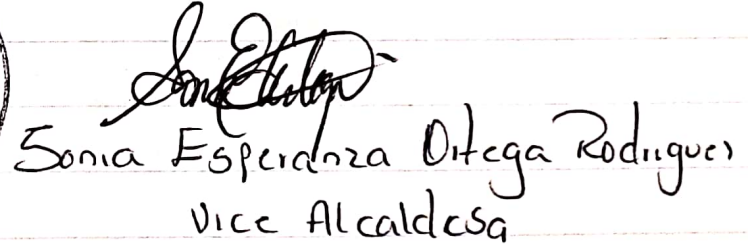 Sonia Esperanza Ortega Rodriguez
Vice Alcaldesa